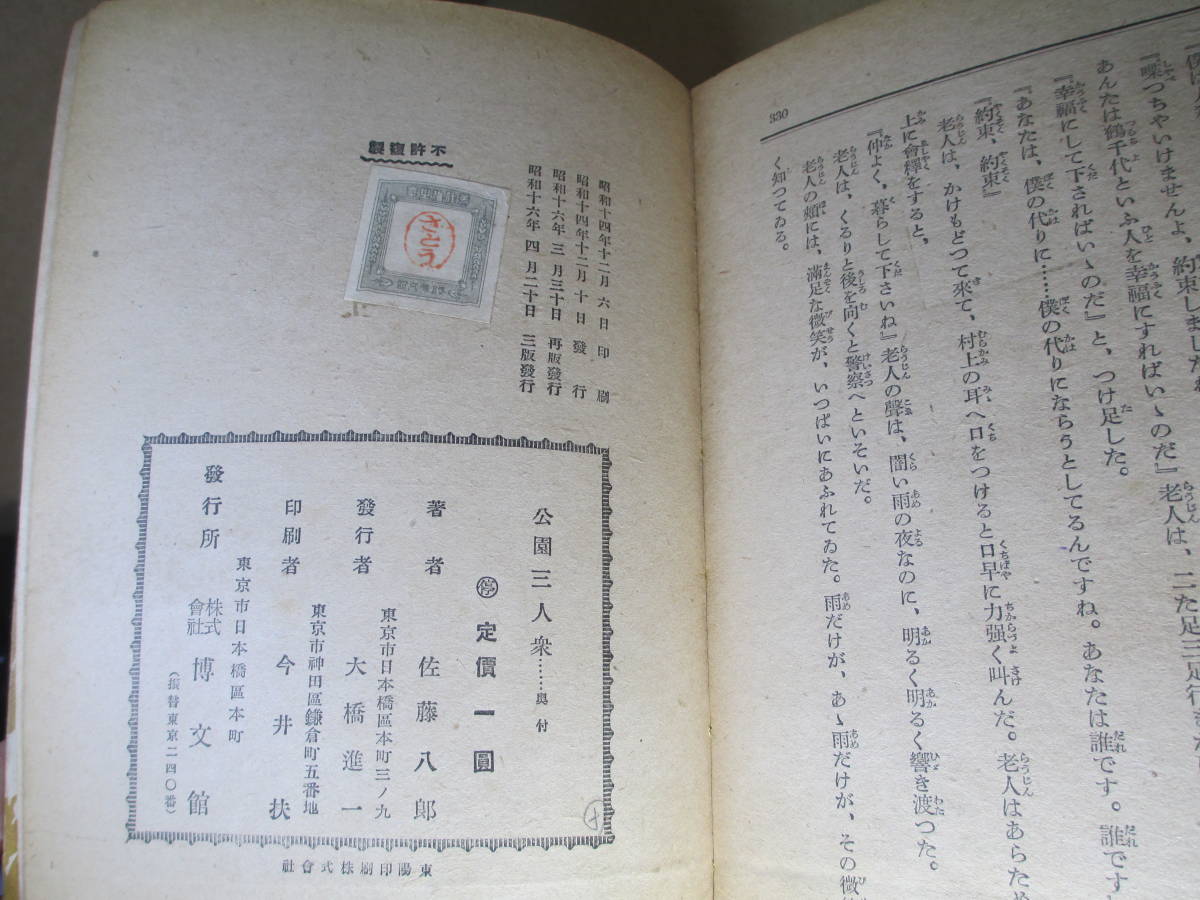 330
喋つちやいけませんよ、約束しましたね
あんたは鶴千代といふ人を幸福にすればいゝのだ』老人は、二た足三足行き
『幸福にして下さればいゝのだ』と、つけ足した。
『あなたは、僕の代りに……僕の代りにならうとしてるんですね。あなたは誰です。誰です
『約束、約束』
老人は、かけもどつて來て、村上の耳へ口をつけると口早に力强く叫んだ。老人はあらため
上に會釋をすると、
『仲よく、暮らして下さいね』老人の聲は、闇い雨の夜なのに、明るく明るく響き渡つた。
老人は、くるりと後を向くと警察へといそいだ。
老人の頰には、滿足な微笑が、いつぱいにあふれてゐた。雨だけが、あゝ雨だけが、その微
く知つてゐる。
不許複製
さとう
昭和十四年十二月六日印刷
昭和十四年十二月十日發行
昭和十六年三月三十日再版發行
昭和十六年四月二十日三版發行
公園三人衆……奧付
㊡定價一圓
著者 佐藤八郞
東京市日本橋區本町三ノ九
發行者 大橋進一
東京市神田區鎌倉町五番地
印刷者 今井扶
東京市日本橋區本町
發行所 株式會社 博文館
(振替東京二四〇番)
東陽印刷株式會社